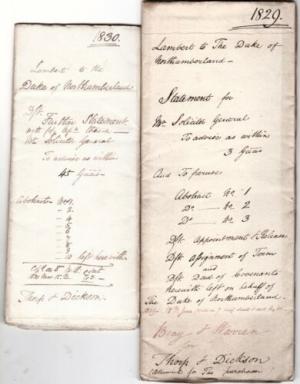 1830.
Lambert to the
Duke of Northumberland
Dft
Further Statement
Mr Solicitor General
To advise as within
45 Guas
Abstracts No 1.
- 2
- 4
- 5
- 6
10 left herewith
Thorp & Dickson.
1829.
Lambert to The Duke of
Northumberland
Statement for
Mr Solicitor General
To advise as within
3 Guas
And To peruse
Abstract No 1
Do No 2
Do No 3
Dft Appointment & Release
Dft Assignment of Term
and
Dft Deed of Covenants
herewith left on behalf of
The Duke of Northumberland.
Bray & Warren
for
Thorp & Dickson
for The purchaser